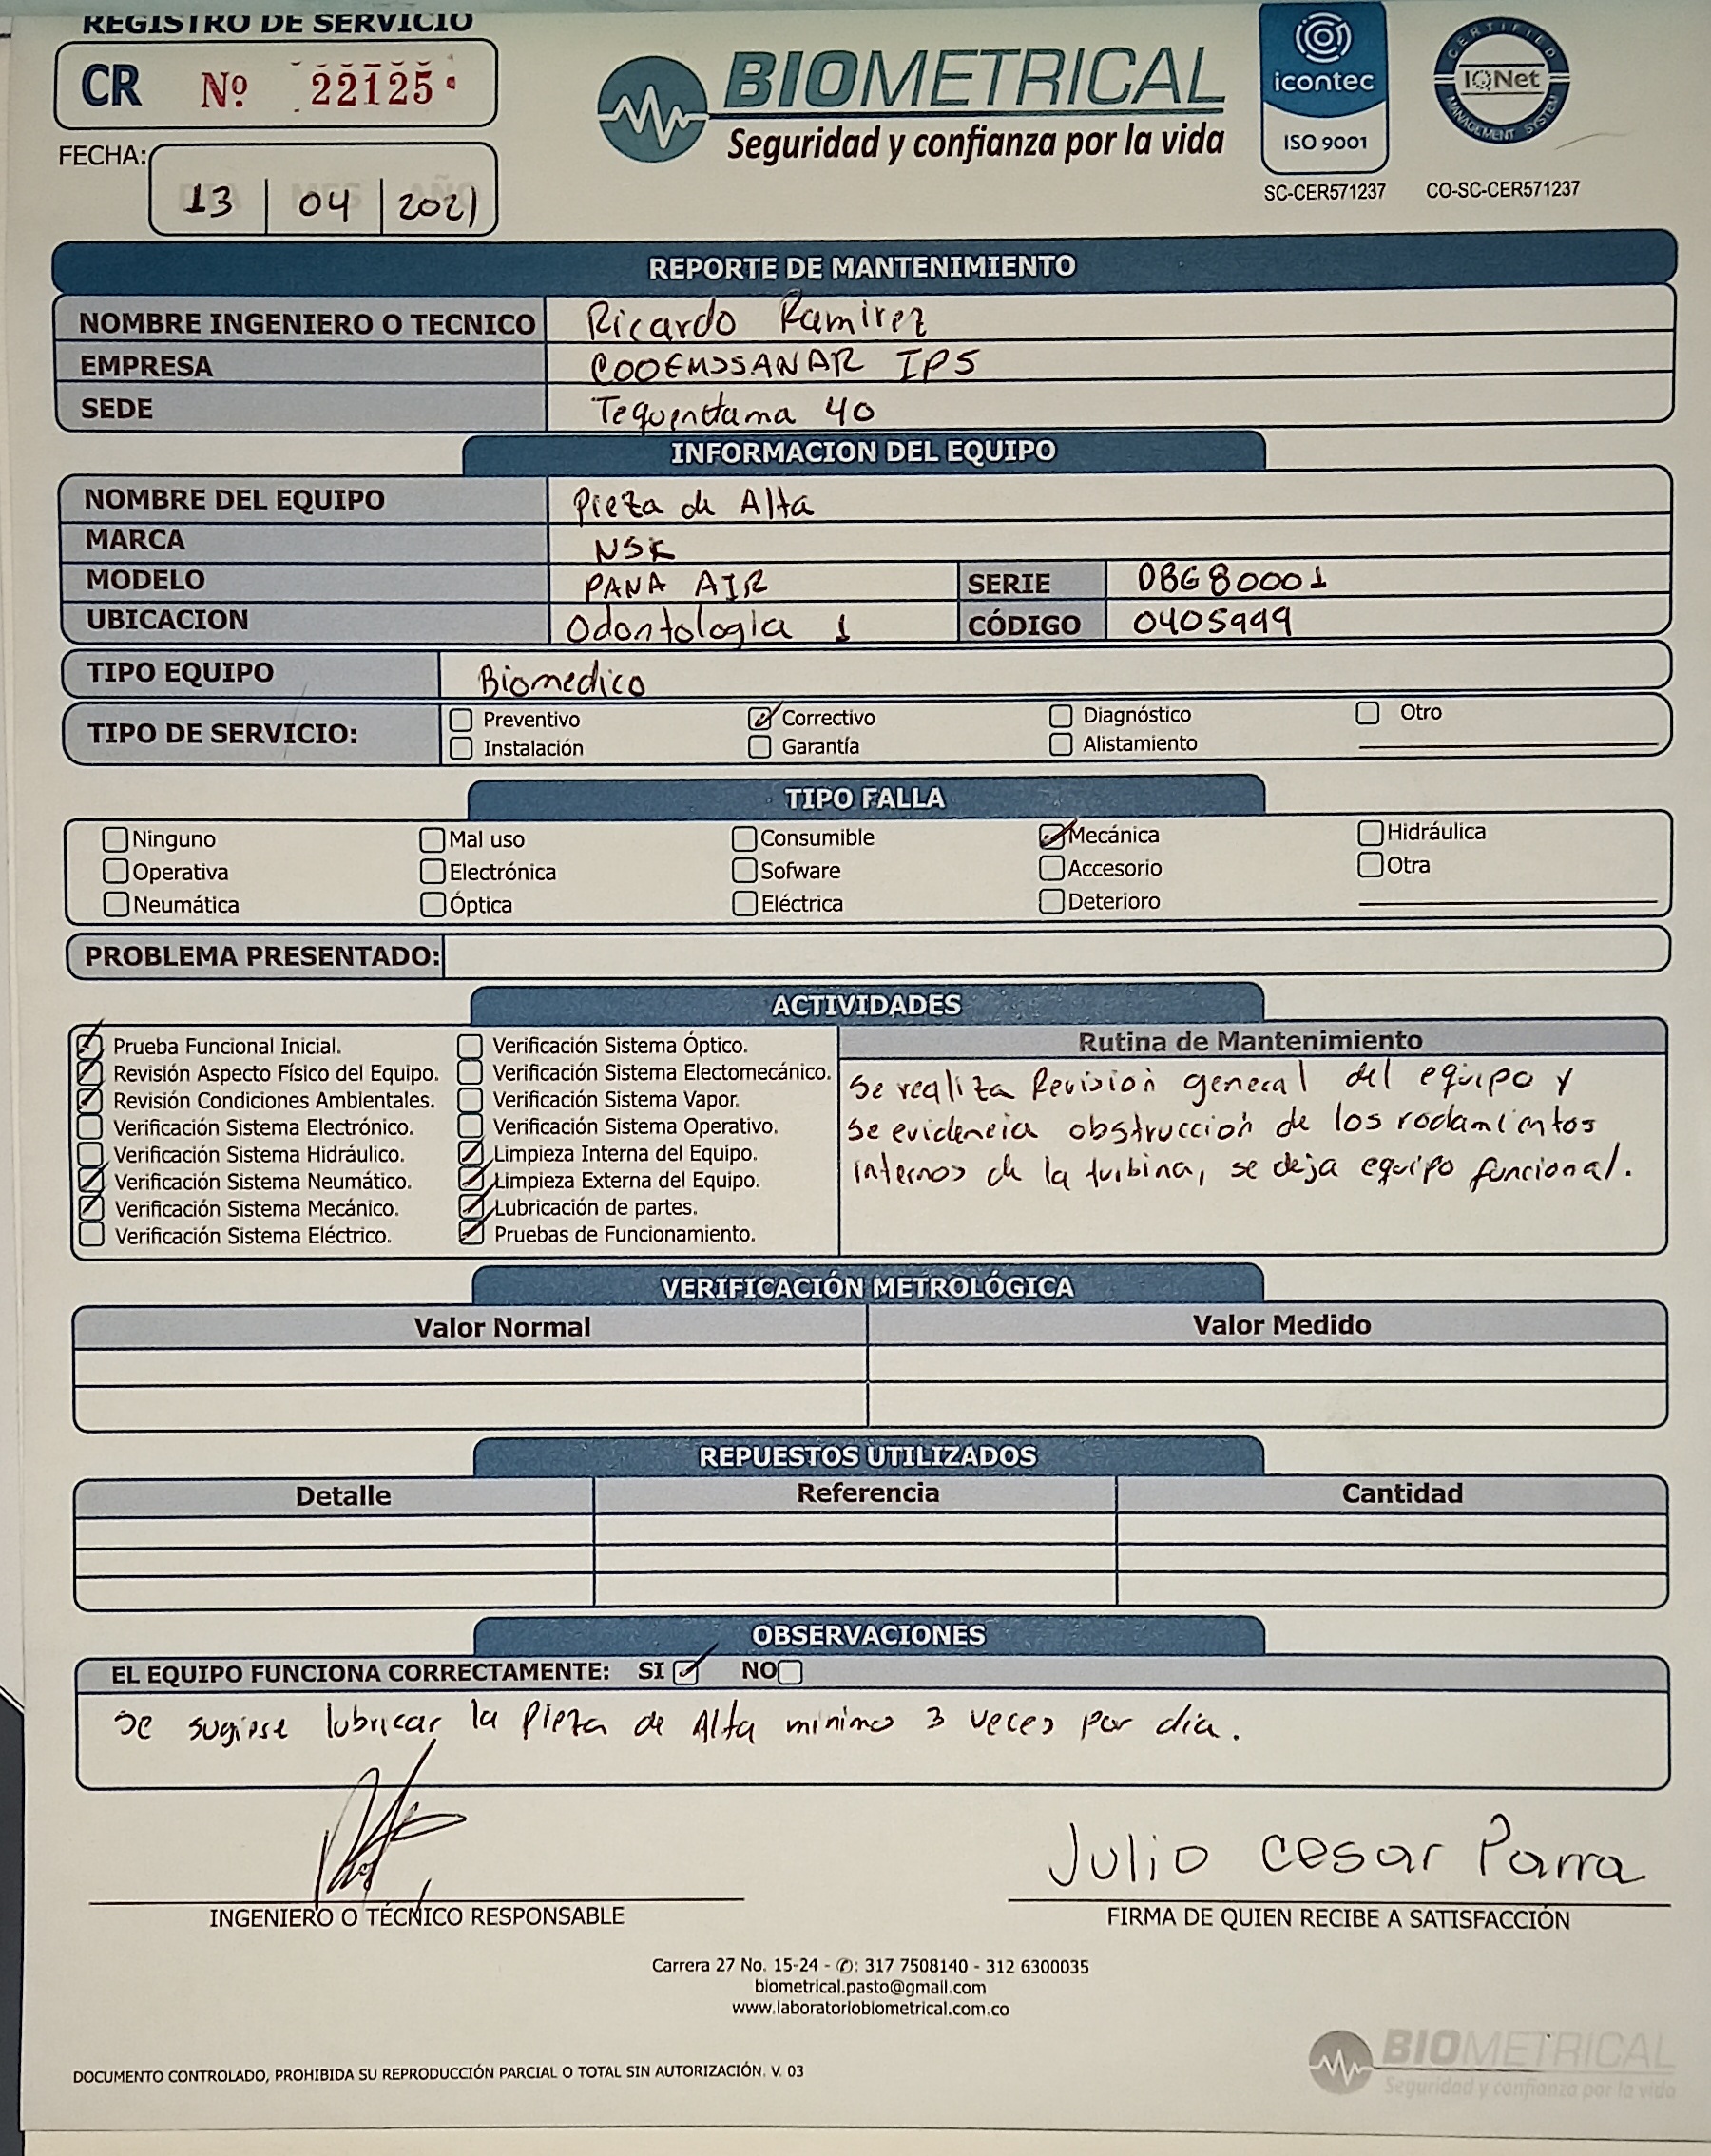 REGISTRO DE SERVICIO
CR Nº 22125
FECHA:
DIA MES AÑO
13 04 2021
BIOMETRICAL
Seguridad y confianza por la vida
icontec
ISO 9001
SC-CER571237
CERTIFIED
IQNet
MANAGEMENT SYSTEM
CO-SC-CER571237
REPORTE DE MANTENIMIENTO
NOMBRE INGENIERO O TECNICO Ricardo Ramirez
EMPRESA COOEMSSANAR IPS
SEDE Tequendama 40
INFORMACION DEL EQUIPO
NOMBRE DEL EQUIPO Pieza de Alta
MARCA NSK
MODELO PANA AIR SERIE 0BG80001
UBICACION Odontologia 1 CÓDIGO 0405999
TIPO EQUIPO Biomedico
TIPO DE SERVICIO:
Preventivo Correctivo Diagnóstico Otro
Instalación Garantía Alistamiento
TIPO FALLA
Ninguno Mal uso Consumible Mecánica Hidráulica
Operativa Electrónica Sofware Accesorio Otra
Neumática Óptica Eléctrica Deterioro
PROBLEMA PRESENTADO:
ACTIVIDADES
Prueba Funcional Inicial.
Revisión Aspecto Físico del Equipo.
Revisión Condiciones Ambientales.
Verificación Sistema Electrónico.
Verificación Sistema Hidráulico.
Verificación Sistema Neumático.
Verificación Sistema Mecánico.
Verificación Sistema Eléctrico.
Verificación Sistema Óptico.
Verificación Sistema Electomecánico.
Verificación Sistema Vapor.
Verificación Sistema Operativo.
Limpieza Interna del Equipo.
Limpieza Externa del Equipo.
Lubricación de partes.
Pruebas de Funcionamiento.
Rutina de Mantenimiento
Se realiza Revisión general del equipo y
se evidencia obstrucción de los rodamientos
internos de la turbina, se deja equipo funcional.
VERIFICACIÓN METROLÓGICA
Valor Normal Valor Medido
REPUESTOS UTILIZADOS
Detalle Referencia Cantidad
OBSERVACIONES
EL EQUIPO FUNCIONA CORRECTAMENTE: SI NO
Se sugiere lubricar la Pieza de Alta minimo 3 veces por dia.
Julio Cesar Parra
INGENIERO O TÉCNICO RESPONSABLE
FIRMA DE QUIEN RECIBE A SATISFACCIÓN
Carrera 27 No. 15-24 - ✆: 317 7508140 - 312 6300035
biometrical.pasto@gmail.com
www.laboratoriobiometrical.com.co
BIOMETRICAL
Seguridad y confianza por la vida
DOCUMENTO CONTROLADO, PROHIBIDA SU REPRODUCCIÓN PARCIAL O TOTAL SIN AUTORIZACIÓN. V. 03